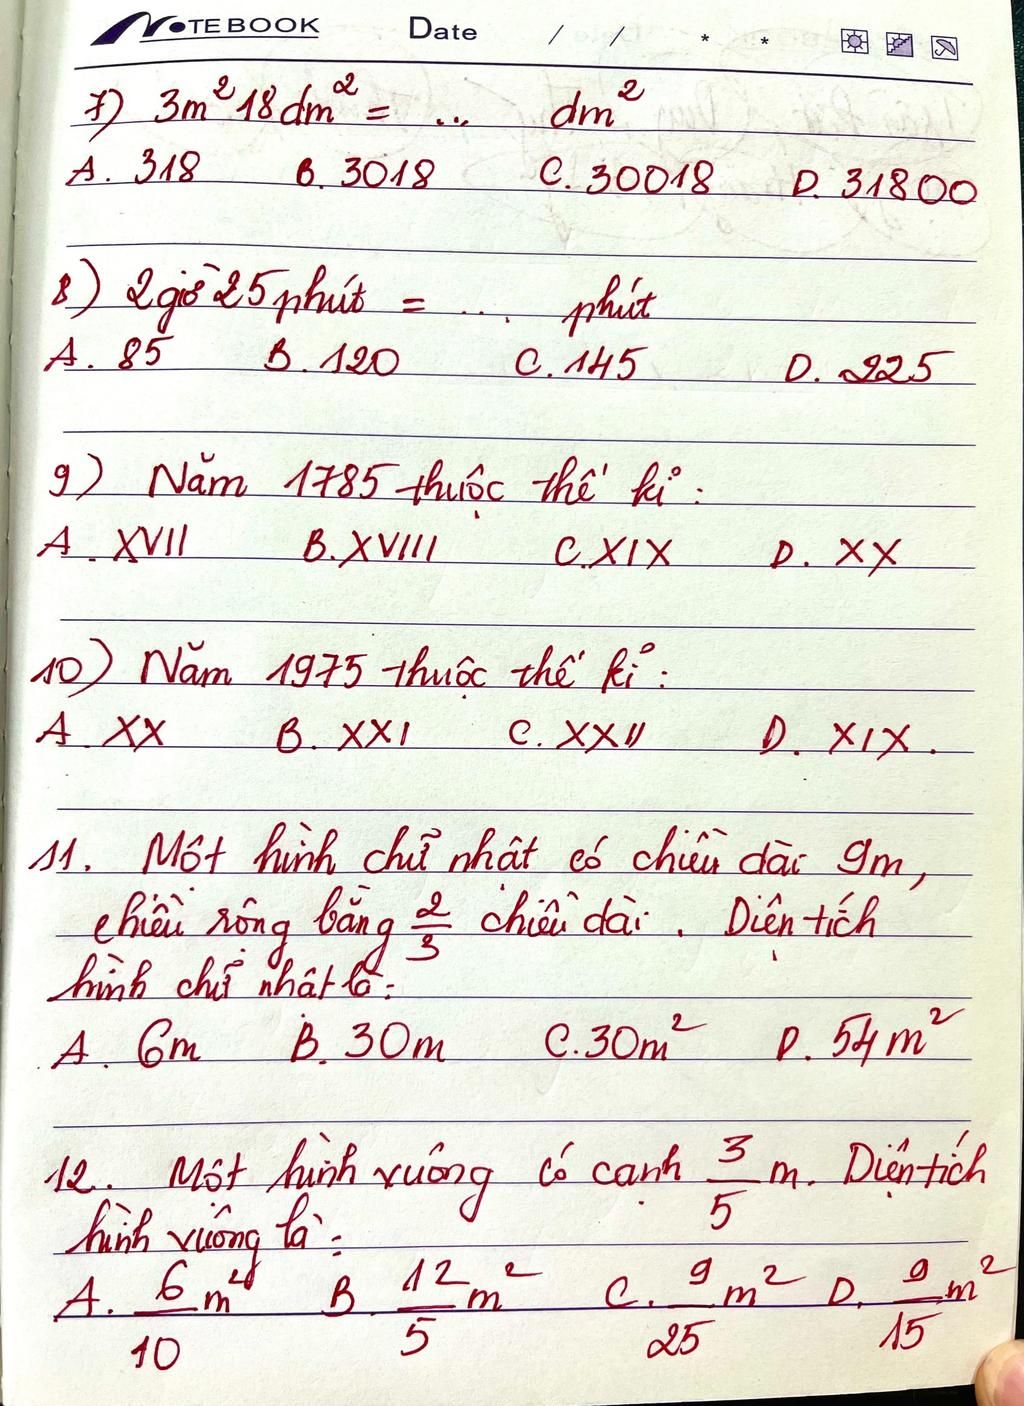 NOTEBOOK Date / / * *
7) 3m² 18dm² = ... dm²
A. 318 B. 3018 C. 30018 D. 31800
8) 2 giờ 25 phút = .... phút
A. 85 B. 120 C. 145 D. 225
9) Năm 1785 thuộc thế kỉ :
A. XVII B. XVIII C. XIX D. XX
10) Năm 1975 thuộc thế kỉ :
A XX B. XXI C. XXII D. XIX.
11. Một hình chữ nhật có chiều dài 9m,
chiều rộng bằng 2/3 chiều dài. Diện tích
hình chữ nhật là:
A. 6m B. 30m C. 30m² D. 54m²
12. Một hình vuông có cạnh 3/5 m. Diện tích
hình vuông là :
A. 6/10 m² B. 12/5 m² C. 9/25 m² D. 9/15 m²